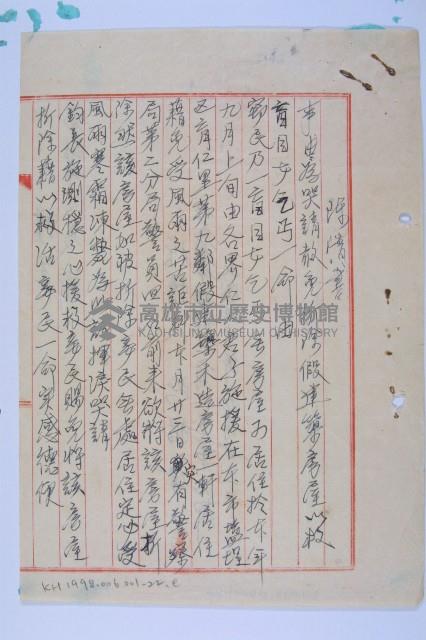 陳情書
事由為哭請赦免拆除假建築房屋以救
盲目女乞丐一命由
竊民乃一盲目女乞丐無房屋可居住於本年
九月上旬由各界仁君子施援在本市塩埕
区育仁里第九鄰假建築木造房屋一軒居住
藉免受風雨之苦詎料本月廿三日突有警察
局第二分局警員四名前來欲將該房屋拆
除然該房屋如被拆除辜民無處居住定必受
風雨寒霜凍斃為此揮淚哭請
鈞長施惻穩之心援救辜民賜免將該房屋
拆除藉以救活辜民一命实感德便
高雄市立歷史博物館
KAOHSIUNG MUSEUM OF HISTORY
KH1998.006.001-22.e